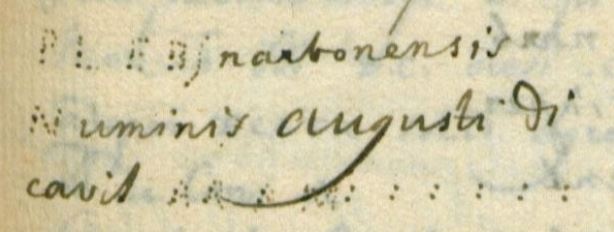 PLEBS narbonensis
Numinis augusti di
cavit : : : : : :